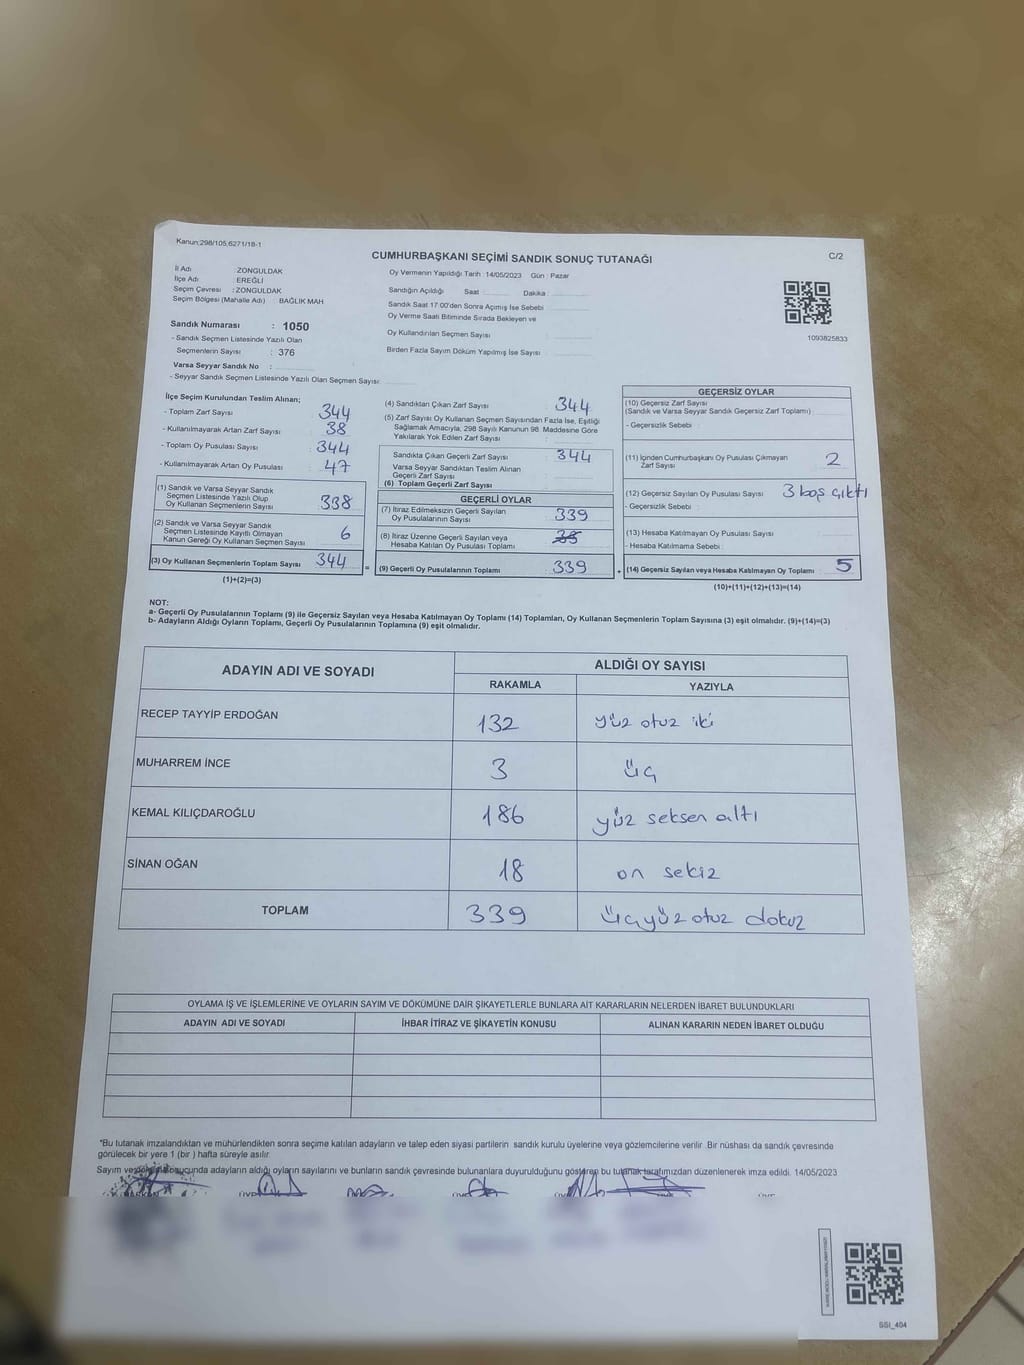 Kanun;298/105,6271/18-1
CUMHURBAŞKANI SEÇİMİ SANDIK SONUÇ TUTANAĞI
C/2
İl Adı : ZONGULDAK
İlçe Adı : EREĞLİ
Seçim Çevresi : ZONGULDAK
Seçim Bölgesi (Mahalle Adı) : BAĞLIK MAH
Sandık Numarası : 1050
- Sandık Seçmen Listesinde Yazılı Olan
Seçmenlerin Sayısı : 376
Varsa Seyyar Sandık No :
- Seyyar Sandık Seçmen Listesinde Yazılı Olan Seçmen Sayısı:
Oy Vermenin Yapıldığı Tarih : 14/05/2023 Gün : Pazar
Sandığın Açıldığı Saat Dakika
Sandık Saat 17:00'den Sonra Açılmış İse Sebebi
Oy Verme Saati Bitiminde Sırada Bekleyen ve
Oy Kullandırılan Seçmen Sayısı :
Birden Fazla Sayım Döküm Yapılmış İse Sayısı
1093825833
İlçe Seçim Kurulundan Teslim Alınan;
- Toplam Zarf Sayısı : 344
- Kullanılmayarak Artan Zarf Sayısı : 38
- Toplam Oy Pusulası Sayısı : 344
- Kullanılmayarak Artan Oy Pusulası : 47
(1) Sandık ve Varsa Seyyar Sandık
Seçmen Listesinde Yazılı Olup
Oy Kullanan Seçmenlerin Sayısı 338
(2) Sandık ve Varsa Seyyar Sandık
Seçmen Listesinde Kayıtlı Olmayan
Kanun Gereği Oy Kullanan Seçmen Sayısı 6
(3) Oy Kullanan Seçmenlerin Toplam Sayısı 344
(1)+(2)=(3)
=
(4) Sandıktan Çıkan Zarf Sayısı : 344
(5) Zarf Sayısı Oy Kullanan Seçmen Sayısından Fazla İse, Eşitliği
Sağlamak Amacıyla, 298 Sayılı Kanunun 98. Maddesine Göre
Yakılarak Yok Edilen Zarf Sayısı :
Sandıkta Çıkan Geçerli Zarf Sayısı : 344
Varsa Seyyar Sandıktan Teslim Alınan
Geçerli Zarf Sayısı
(6) Toplam Geçerli Zarf Sayısı
GEÇERLİ OYLAR
(7) İtiraz Edilmeksizin Geçerli Sayılan
Oy Pusulalarının Sayısı : 339
(8) İtiraz Üzerine Geçerli Sayılan veya
Hesaba Katılan Oy Pusulası Toplamı
(9) Geçerli Oy Pusulalarının Toplamı : 339
+
GEÇERSİZ OYLAR
(10) Geçersiz Zarf Sayısı
(Sandık ve Varsa Seyyar Sandık Geçersiz Zarf Toplamı)
- Geçersizlik Sebebi :
(11) İçinden Cumhurbaşkanı Oy Pusulası Çıkmayan
Zarf Sayısı 2
(12) Geçersiz Sayılan Oy Pusulası Sayısı : 3 boş çıktı
- Geçersizlik Sebebi :
(13) Hesaba Katılmayan Oy Pusulası Sayısı
- Hesaba Katılmama Sebebi :
(14) Geçersiz Sayılan veya Hesaba Katılmayan Oy Toplamı : 5
(10)+(11)+(12)+(13)=(14)
NOT:
a- Geçerli Oy Pusulalarının Toplamı (9) ile Geçersiz Sayılan veya Hesaba Katılmayan Oy Toplamı (14) Toplamları, Oy Kullanan Seçmenlerin Toplam Sayısına (3) eşit olmalıdır. (9)+(14)=(3)
b- Adayların Aldığı Oyların Toplamı, Geçerli Oy Pusulalarının Toplamına (9) eşit olmalıdır.
ADAYIN ADI VE SOYADI
ALDIĞI OY SAYISI
RAKAMLA YAZIYLA
RECEP TAYYİP ERDOĞAN 132 yüz otuz iki
MUHARREM İNCE 3 üç
KEMAL KILIÇDAROĞLU 186 yüz seksen altı
SİNAN OĞAN 18 on sekiz
TOPLAM 339 üçyüz otuz dokuz
OYLAMA İŞ VE İŞLEMLERİNE VE OYLARIN SAYIM VE DÖKÜMÜNE DAİR ŞİKAYETLERLE BUNLARA AİT KARARLARIN NELERDEN İBARET BULUNDUKLARI
ADAYIN ADI VE SOYADI İHBAR İTİRAZ VE ŞİKAYETİN KONUSU ALINAN KARARIN NEDEN İBARET OLDUĞU
"Bu tutanak imzalandıktan ve mühürlendikten sonra seçime katılan adayların ve talep eden siyasi partilerin sandık kurulu üyelerine veya gözlemcilerine verilir. Bir nüshası da sandık çevresinde
görülecek bir yere 1 (bir) hafta süreyle asılır.
Sayım ve döküm sonucunda adayların aldığı oyların sayılarını ve bunların sandık çevresinde bulunanlara duyurulduğunu gösteren bu tutanak tarafımızdan düzenlenerek imza edildi. 14/05/2023
SSI_404